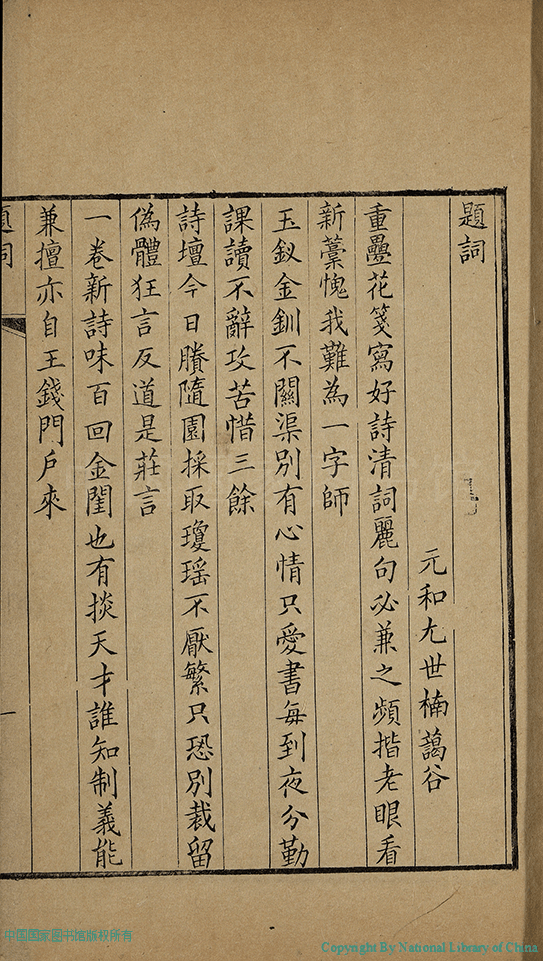 題詞
元和尤世楠蔼谷
重疊花箋寫好詩清詞麗句必兼之頻揩老眼看
新藁愧我難為一字師
玉釵金釧不關渠別有心情只愛書每到夜分勤
課讀不辭攻苦惜三餘
詩壇今日賸隨園採取瓊瑶不厭繁只恐別裁留
偽體狂言反道是莊言
一卷新詩味百回金閨也有掞天才誰知制義能
兼擅亦自王錢門戶來
題詞
一
中国国家图书馆版权所有
Copyright By National Library of China